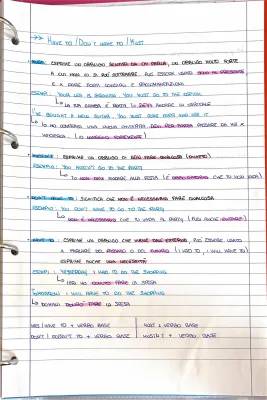 → HAVE TO / DON'T HAVE TO / MUST
• MUST: ESPRIME UN OBBLIGO SENTITO DA CHI PARLA, UN OBBLIGO MOLTO FORTE
A CUI NON CI SI PUÒ SOTTRARRE. PUÒ ESSERE USATO SOLO AL PRESENTE
E X DARE FORTI CONSIGLI E RACCOMANDAZIONI
ESEMPI: YOUR LEG IS BROKEN. YOU MUST GO TO THE HOSPITAL
↳ LA TUA GAMBA È ROTTA, DEVI ANDARE IN OSPEDALE
I'VE BOUGHT A NEW GUITAR. YOU MUST COME AND SEE IT
↳ HO COMPRATO UNA NUOVA CHITARRA. DEVI PER FORZA PASSARE DA ME X
VEDERLA.
• MUSTN'T: ESPRIME UN OBBLIGO DI NON FARE QUALCOSA (DIVIETO)
ESEMPIO: YOU MUSTN'T GO TO THE PARTY
↳ TU NON DEVI ANDARE ALLA FESTA (È CHE TU NON VADA)
• DON'T HAVE TO: SIGNIFICA CHE NON È NECESSARIO FARE QUALCOSA
ESEMPIO: YOU DON'T HAVE TO GO TO THE PARTY
↳ NON È NECESSARIO CHE TU VADA AL PARTY (PUOI ANCHE)
• HAVE TO: ESPRIME UN OBBLIGO CHE VIENE DALL'ESTERNO, PUÒ ESSERE USATO
X PARLARE DEL PASSATO O DEL FUTURO (I HAD TO, I WILL HAVE TO)
ESPRIME ANCHE UNA NECESSITÀ
ESEMPI: YESTERDAY I HAD TO DO THE SHOPPING
↳ IERI HO DOVUTO FARE LA SPESA
TOMORROW I WILL HAVE TO DO THE SHOPPING
↳ DOMANI DOVRÒ FARE LA SPESA
HAVE TO + VERBO BASE MUST + VERBO BASE
DON'T / DOESN'T TO + VERBO BASE MUSTN'T + VERBO BASE